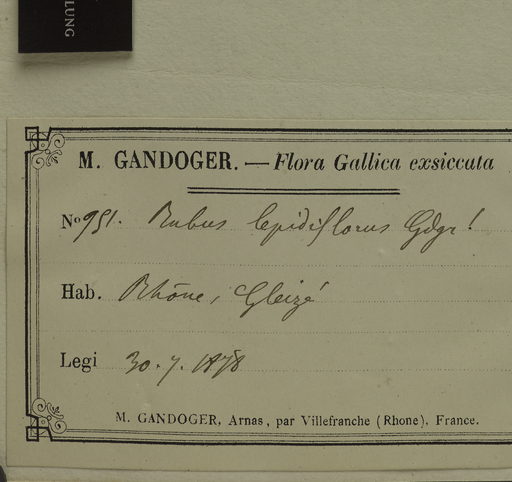 LUNG
M. GANDOGER. — Flora Gallica exsiccata
No 951. Rubus lepidiflorus Gdgr!
Hab. Rhône, Gleizé
Legi 30.7.1878
M. GANDOGER, Arnas, par Villefranche (Rhone). France.